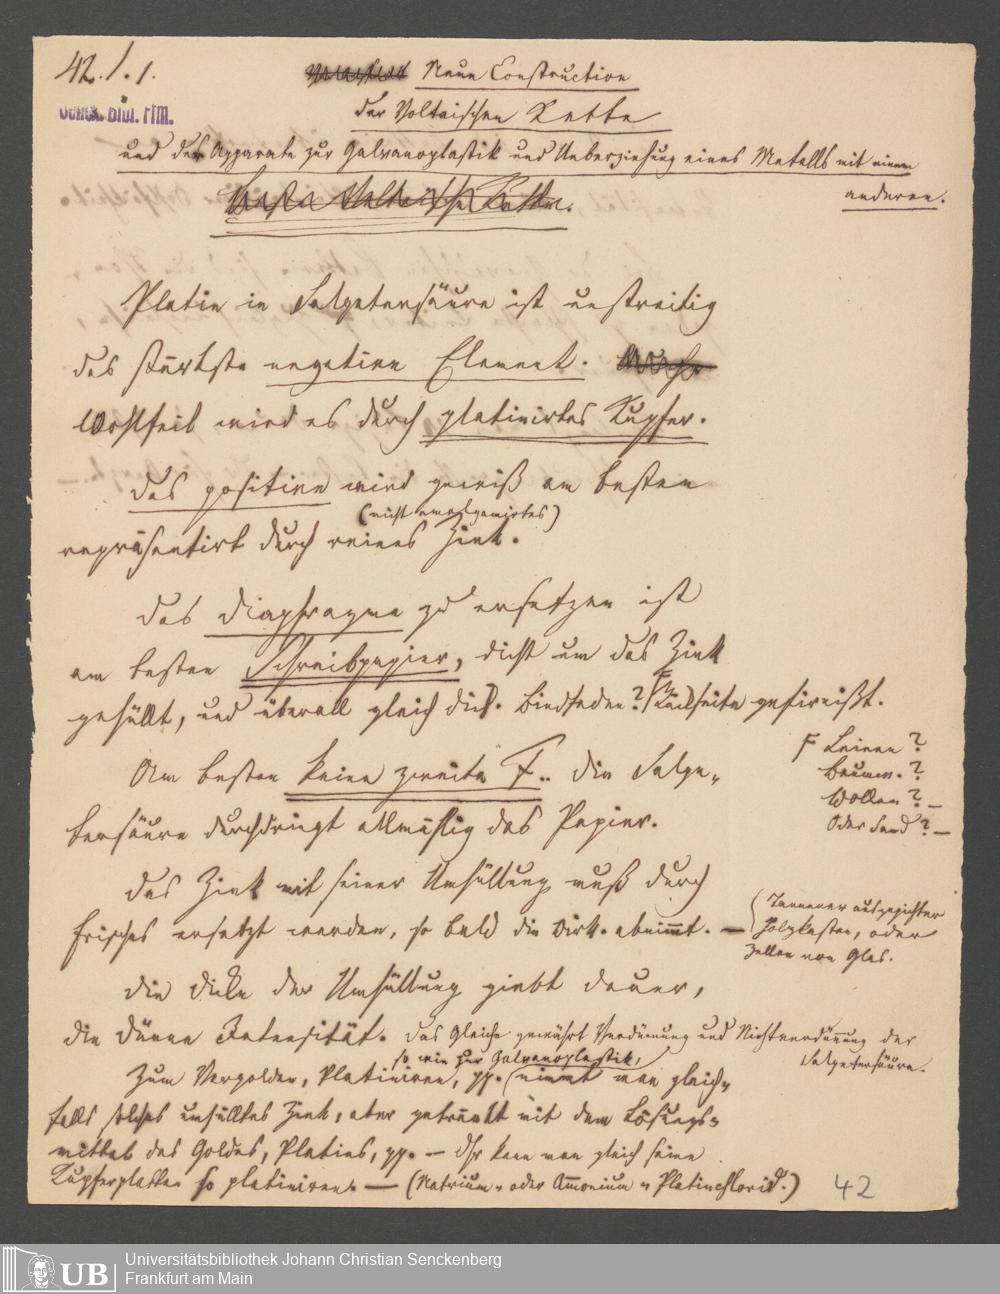 42. 1. 1.
Senck. Bibl. Ffm.
Neue Construction
der Voltaischen Kette
und des Apparats zur Galvanoplastik und Ueberziehung eines Metalls mit einem
anderen.
Platin in Salpetersäure ist unstreitig
das stärkste negative Element.
Wohlfeil wird es durch platinirtes Kupfer.
Das positive wird gewiß am besten
(nicht amalgamirtes)
repräsentirt durch reines Zink.
Das Diaphragma zu ersetzen ist
am besten Schreibpapier, dicht um das Zink
gehüllt, und überall gleich dick. Bindfaden? Rückseite gefirnißt.
F Leinen?
Baumw.?
Wollen? –
Oder Sand? –
Am besten keine zweite F.. Die Salpe-
tersäure durchdringt allmählig das Papier.
Das Zink mit seiner Umhüllung muß durch
frisches ersetzt werden, so bald die Wirk. abnimmt. –
(Tannener ausgepichter
Holzkasten, oder
Zellen von Glas.
Die Dicke der Umhüllung giebt Dauer,
die Dünne Intensität. Das Gleiche gewährt Verdünnung und Nichtverdünnung der
Salpetersäure.
so wie zur Galvanoplastik,
Zum Vergolden, Platiniren, pp. nimmt man gleich-
falls solches umhülltes Zink, aber getränkt mit dem Lösungs-
mittel des Goldes, Platins, pp. – So kann man gleich seine
Kupferplatten so platiniren. – (Natrium- oder Ammonium- Platinchlorid.)
42
UB
Universitätsbibliothek Johann Christian Senckenberg
Frankfurt am Main